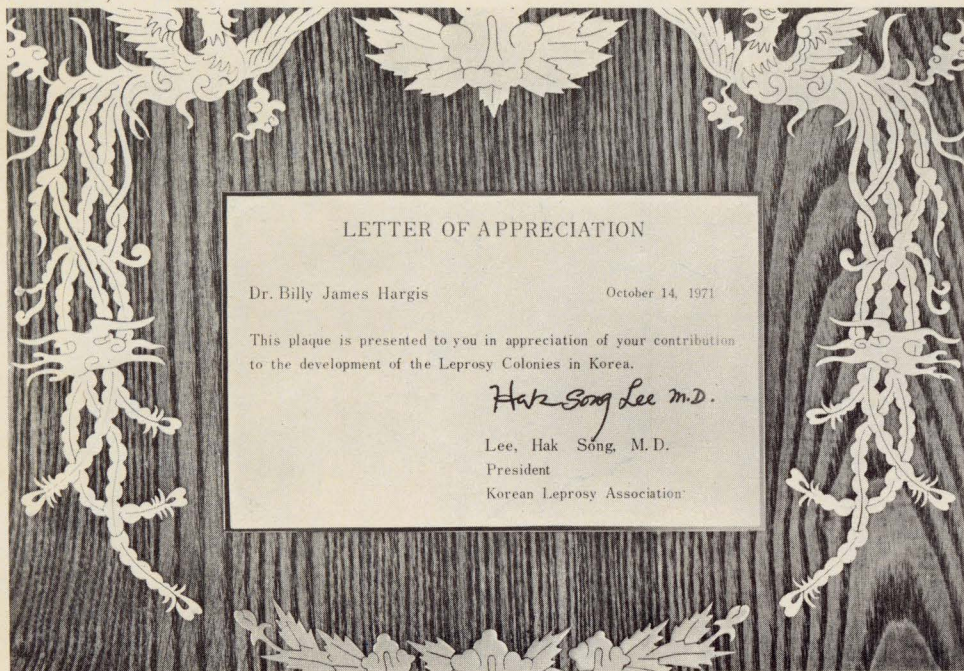 LETTER OF APPRECIATION
Dr. Billy James Hargis October 14, 1971
This plaque is presented to you in appreciation of your contribution
to the development of the Leprosy Colonies in Korea.
Hak Song Lee M.D.
Lee, Hak Song, M.D.
President
Korean Leprosy Association